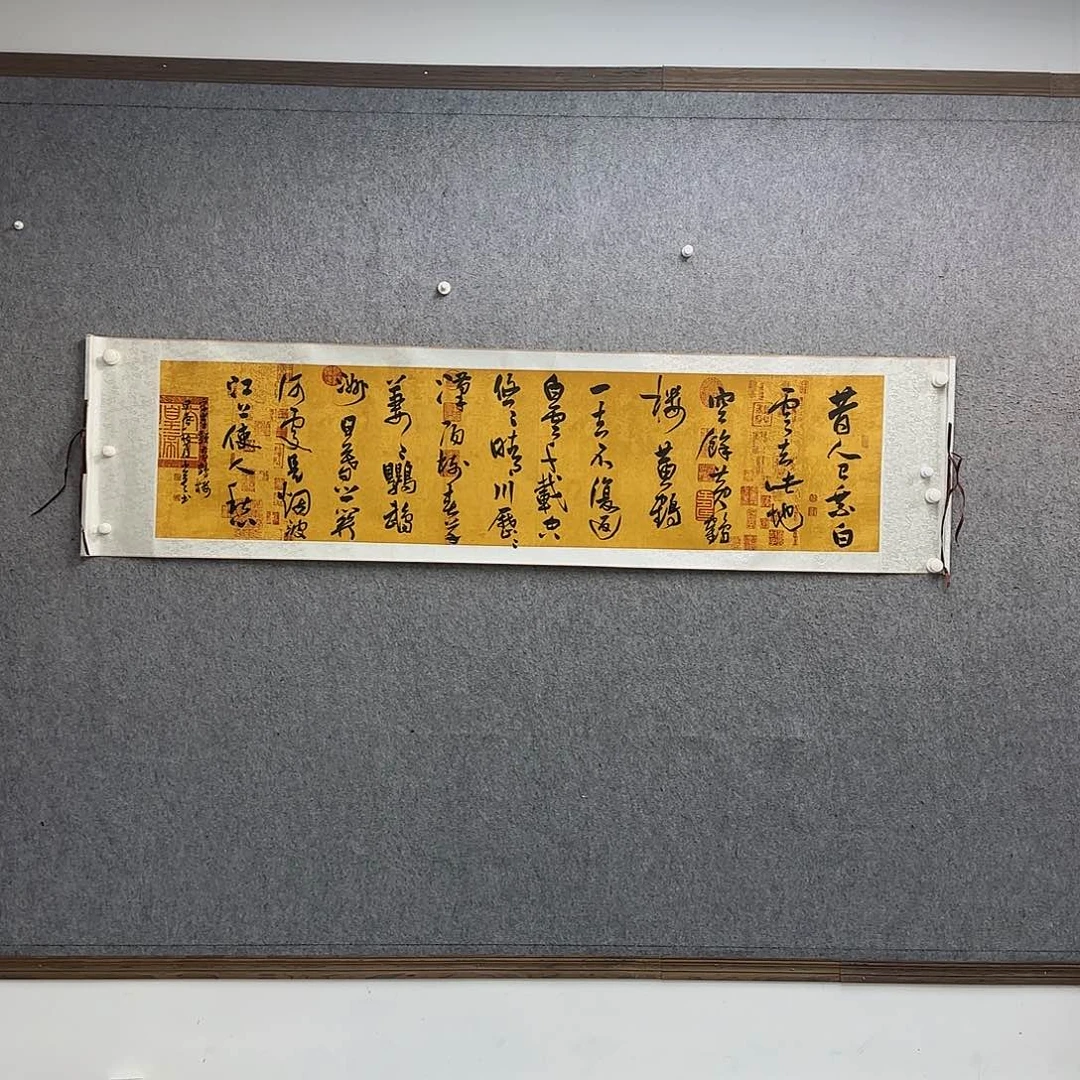 昔人已乘白
雲去此地
空餘黄鶴
樓黄鶴
一去不復返
白雲千載空
悠〻晴川歷〻
漢陽樹春草
萋〻鸚鵡
洲日暮鄉關
何處是烟波
江上使人愁